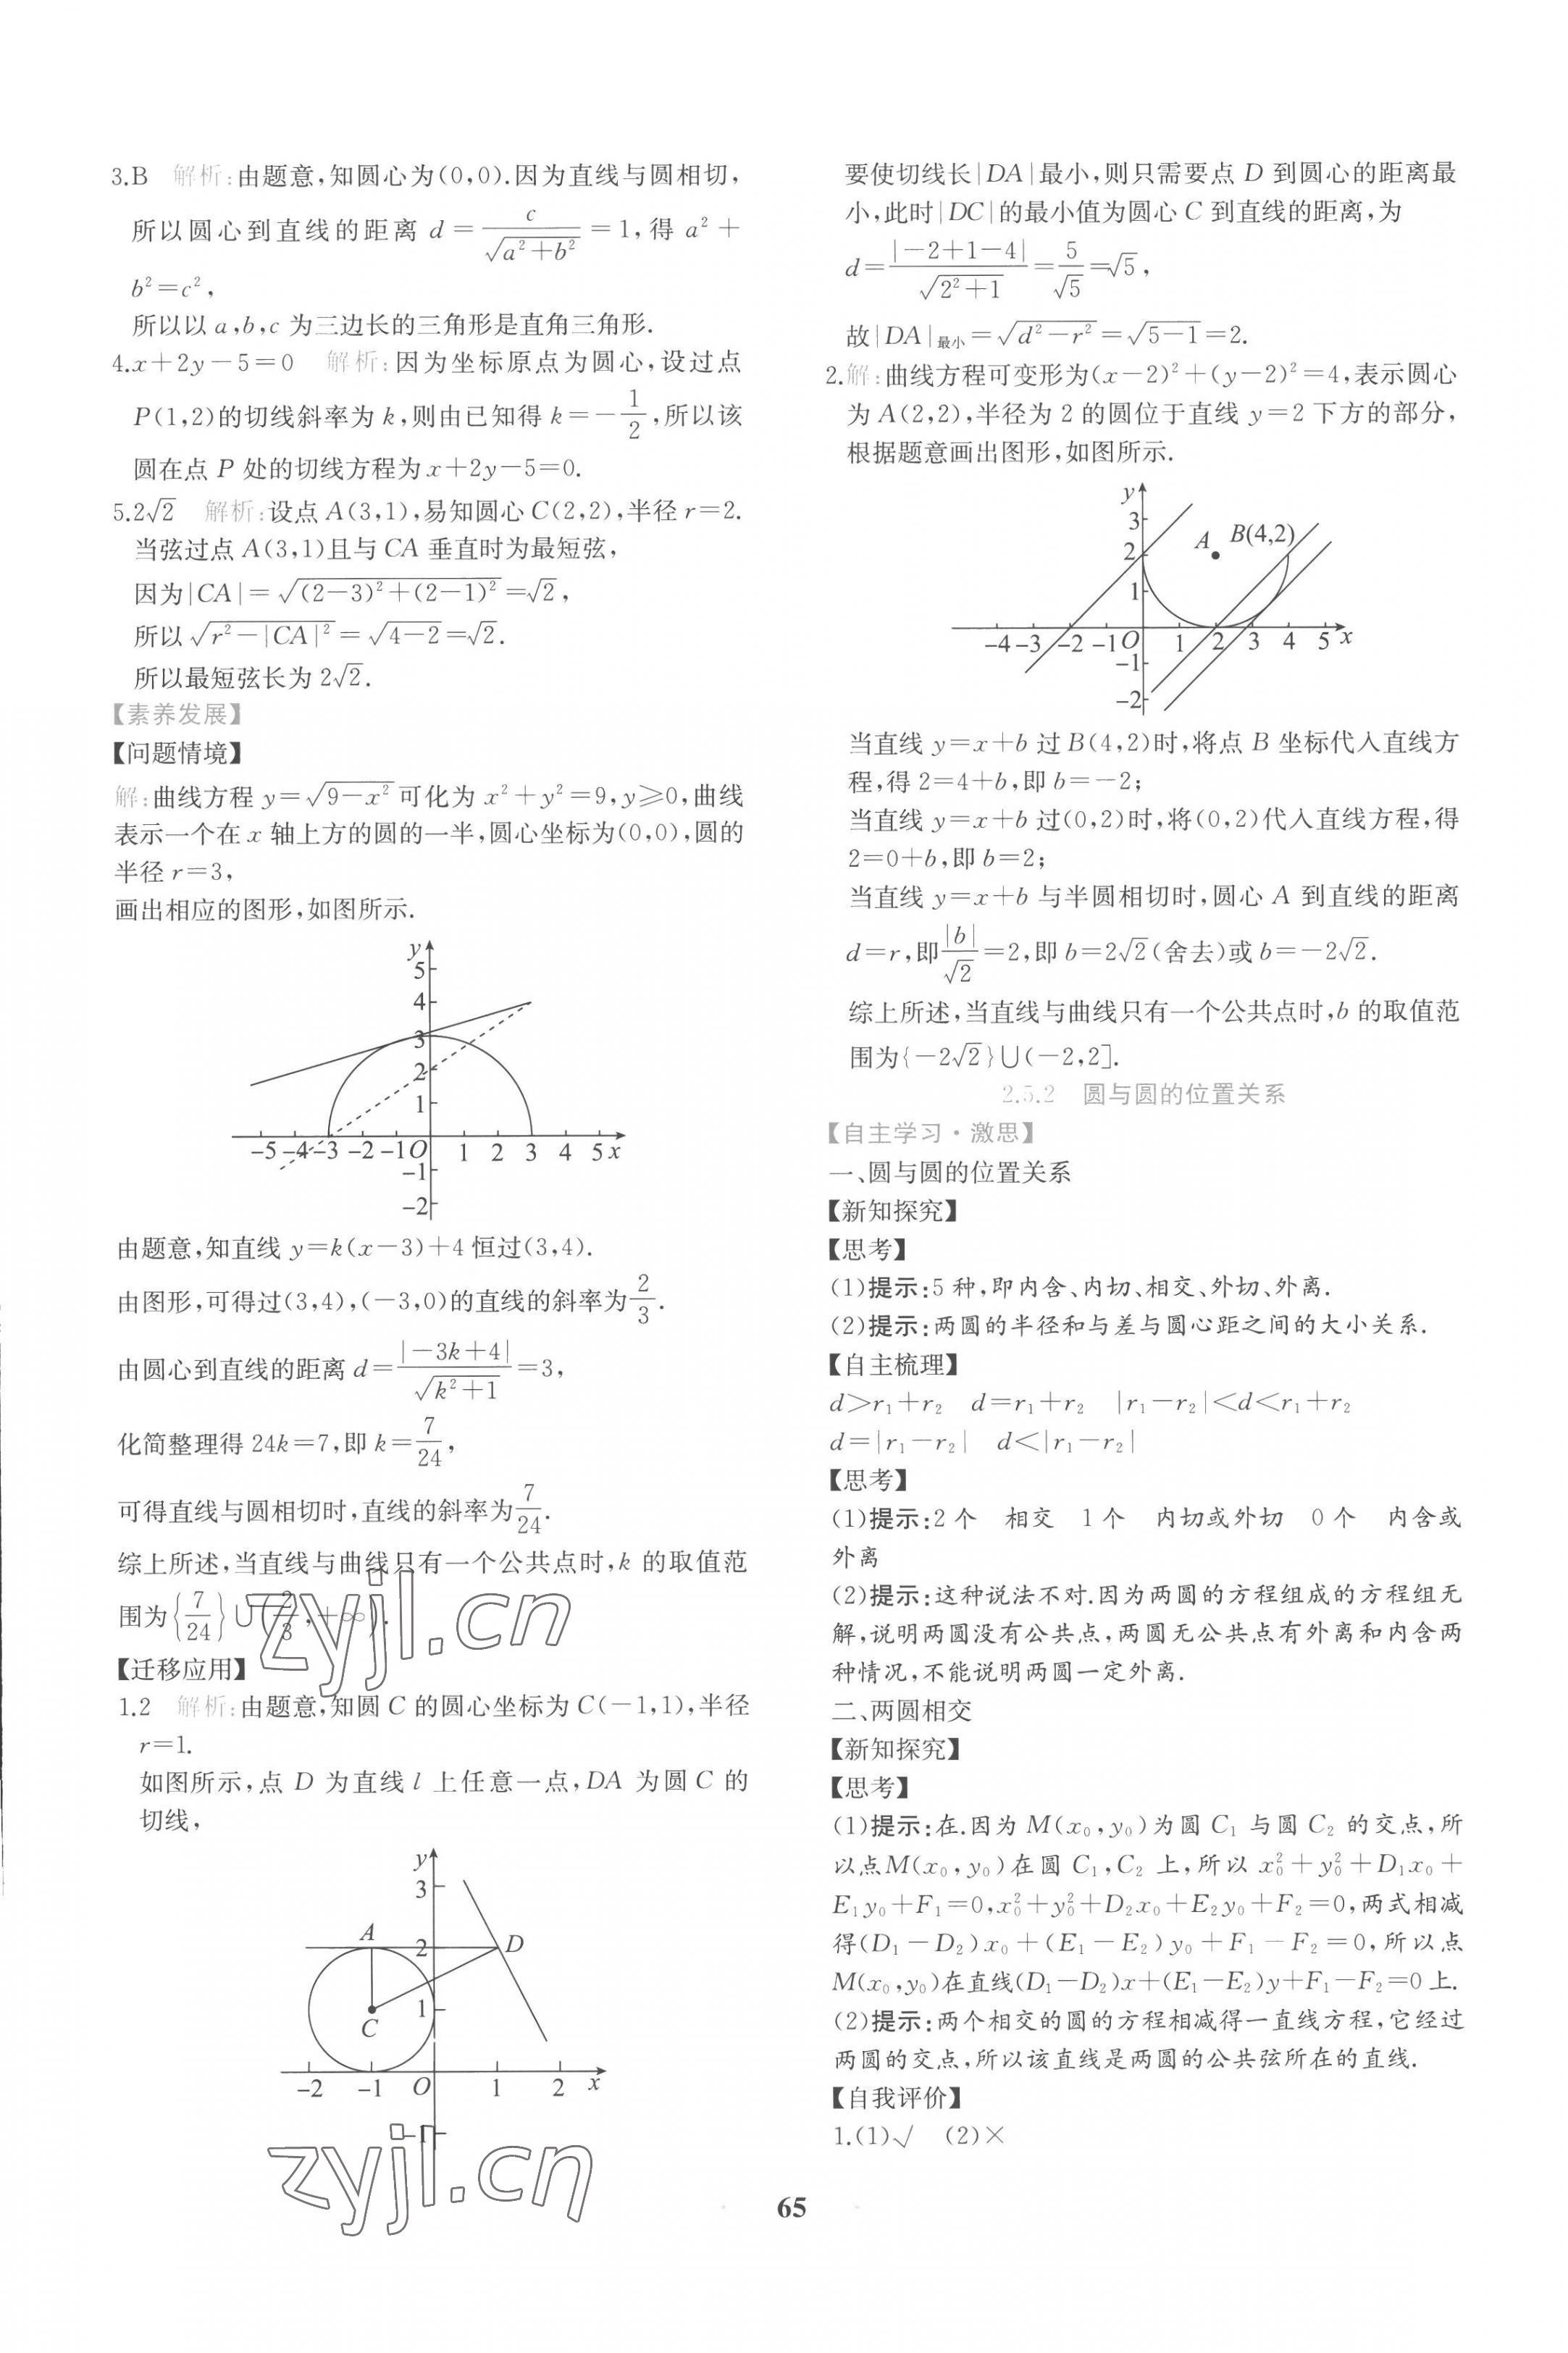 3.B 解析:由题意,知圆心为(0,0).因为直线与圆相切,
所以圆心到直线的距离 d=c/√(a²+b²)=1,得 a²+
b²=c²,
所以以 a,b,c 为三边长的三角形是直角三角形.
4.x+2y-5=0 解析:因为坐标原点为圆心,设过点
P(1,2)的切线斜率为 k,则由已知得 k=-1/2,所以该
圆在点 P 处的切线方程为 x+2y-5=0.
5.2√2 解析:设点 A(3,1),易知圆心 C(2,2),半径 r=2.
当弦过点 A(3,1)且与 CA 垂直时为最短弦,
因为|CA|=√((2-3)²+(2-1)²)=√2,
所以√(r²-|CA|²)=√(4-2)=√2.
所以最短弦长为 2√2.
【素养发展】
【问题情境】
解:曲线方程 y=√(9-x²)可化为 x²+y²=9,y≥0,曲线
表示一个在 x 轴上方的圆的一半,圆心坐标为(0,0),圆的
半径 r=3,
画出相应的图形,如图所示.
y
5
4
3
2
1
-5 -4 -3 -2 -1 O 1 2 3 4 5 x
-1
-2
由题意,知直线 y=k(x-3)+4 恒过(3,4).
由图形,可得过(3,4),(-3,0)的直线的斜率为2/3.
由圆心到直线的距离 d=|-3k+4|/√(k²+1)=3,
化简整理得 24k=7,即 k=7/24,
可得直线与圆相切时,直线的斜率为7/24.
综上所述,当直线与曲线只有一个公共点时,k 的取值范
围为{7/24}∪(2/3,+∞).
zyjl.cn
【迁移应用】
1.2 解析:由题意,知圆 C 的圆心坐标为 C(-1,1),半径
r=1.
如图所示,点 D 为直线 l 上任意一点,DA 为圆 C 的
切线,
y
3
A 2 D
1
C
-2 -1 O 1 2 x
-1
zyjl.cn
要使切线长|DA|最小,则只需要点 D 到圆心的距离最
小,此时|DC|的最小值为圆心 C 到直线的距离,为
d=|-2+1-4|/√(2²+1)=5/√5=√5,
故|DA|最小=√(d²-r²)=√(5-1)=2.
2.解:曲线方程可变形为(x-2)²+(y-2)²=4,表示圆心
为 A(2,2),半径为 2 的圆位于直线 y=2 下方的部分,
根据题意画出图形,如图所示.
y
3
A B(4,2)
2
1
-4 -3 -2 -1 O 1 2 3 4 5 x
-1
-2
当直线 y=x+b 过 B(4,2)时,将点 B 坐标代入直线方
程,得 2=4+b,即 b=-2;
当直线 y=x+b 过(0,2)时,将(0,2)代入直线方程,得
2=0+b,即 b=2;
当直线 y=x+b 与半圆相切时,圆心 A 到直线的距离
d=r,即|b|/√2=2,即 b=2√2(舍去)或 b=-2√2.
综上所述,当直线与曲线只有一个公共点时,b 的取值范
围为{-2√2}∪(-2,2].
2.5.2 圆与圆的位置关系
【自主学习·激思】
一、圆与圆的位置关系
【新知探究】
【思考】
(1)提示:5 种,即内含、内切、相交、外切、外离.
(2)提示:两圆的半径和与差与圆心距之间的大小关系.
【自主梳理】
d>r₁+r₂ d=r₁+r₂ |r₁-r₂|<d<r₁+r₂
d=|r₁-r₂| d<|r₁-r₂|
【思考】
(1)提示:2 个 相交 1 个 内切或外切 0 个 内含或
外离
(2)提示:这种说法不对.因为两圆的方程组成的方程组无
解,说明两圆没有公共点,两圆无公共点有外离和内含两
种情况,不能说明两圆一定外离.
二、两圆相交
【新知探究】
【思考】
(1)提示:在.因为 M(x₀,y₀)为圆 C₁ 与圆 C₂ 的交点,所
以点M(x₀,y₀)在圆 C₁,C₂ 上,所以 x₀²+y₀²+D₁x₀+
E₁y₀+F₁=0,x₀²+y₀²+D₂x₀+E₂y₀+F₂=0,两式相减
得(D₁-D₂)x₀+(E₁-E₂)y₀+F₁-F₂=0,所以点
M(x₀,y₀)在直线(D₁-D₂)x+(E₁-E₂)y+F₁-F₂=0 上.
(2)提示:两个相交的圆的方程相减得一直线方程,它经过
两圆的交点,所以该直线是两圆的公共弦所在的直线.
【自我评价】
1.(1)√ (2)×
65